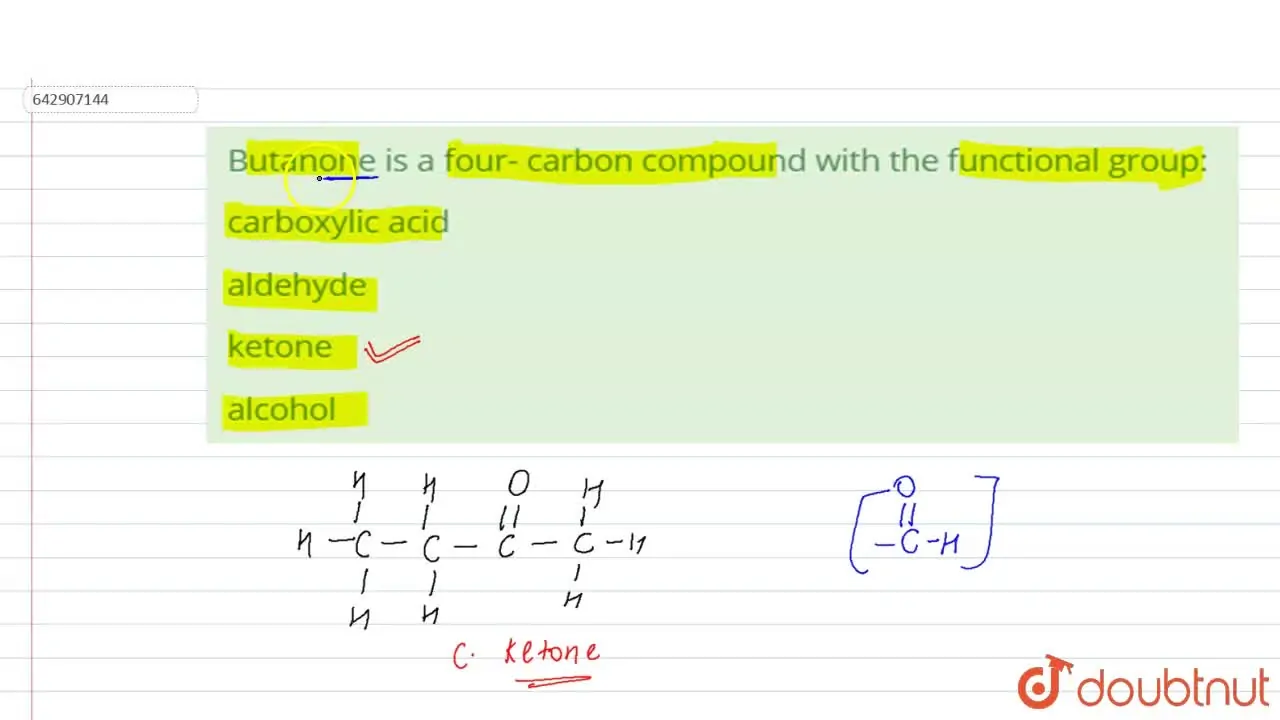 642907144
Butanone is a four- carbon compound with the functional group:
carboxylic acid
aldehyde
ketone
alcohol
H H O H
O
H - C - C - C - C - H
- C - H
H H H
C. Ketone
doubtnut